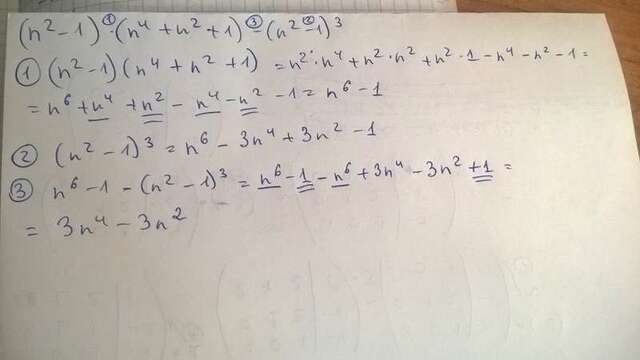 (n² - 1) ·① (n⁴ + n² + 1) -③ (n² - 1)³ ②
① (n² - 1) (n⁴ + n² + 1) = n² · n⁴ + n² · n² + n² · 1 - n⁴ - n² - 1 =
= n⁶ + n⁴ + n² - n⁴ - n² - 1 = n⁶ - 1
② (n² - 1)³ = n⁶ - 3n⁴ + 3n² - 1
③ n⁶ - 1 - (n² - 1)³ = n⁶ - 1 - n⁶ + 3n⁴ - 3n² + 1 =
= 3n⁴ - 3n²